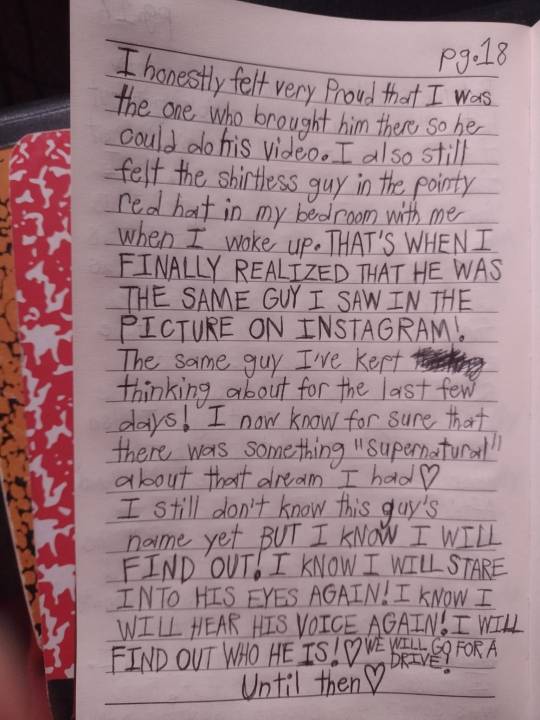 pg.18
I honestly felt very Proud that I was
the one who brought him there so he
could do his video. I also still
felt the shirtless guy in the pointy
red hat in my bedroom with me
when I woke up. THAT'S WHEN I
FINALLY REALIZED THAT HE WAS
THE SAME GUY I SAW IN THE
PICTURE ON INSTAGRAM!
The same guy I've kept
thinking about for the last few
days! I now know for sure that
there was something "Supernatural"
about that dream I had♡
I still don't know this guy's
name yet BUT I KNOW I WILL
FIND OUT! I KNOW I WILL STARE
INTO HIS EYES AGAIN! I KNOW I
WILL HEAR HIS VOICE AGAIN! I WILL
FIND OUT WHO HE IS!♡ WE WILL GO FOR A
DRIVE!
Until then♡